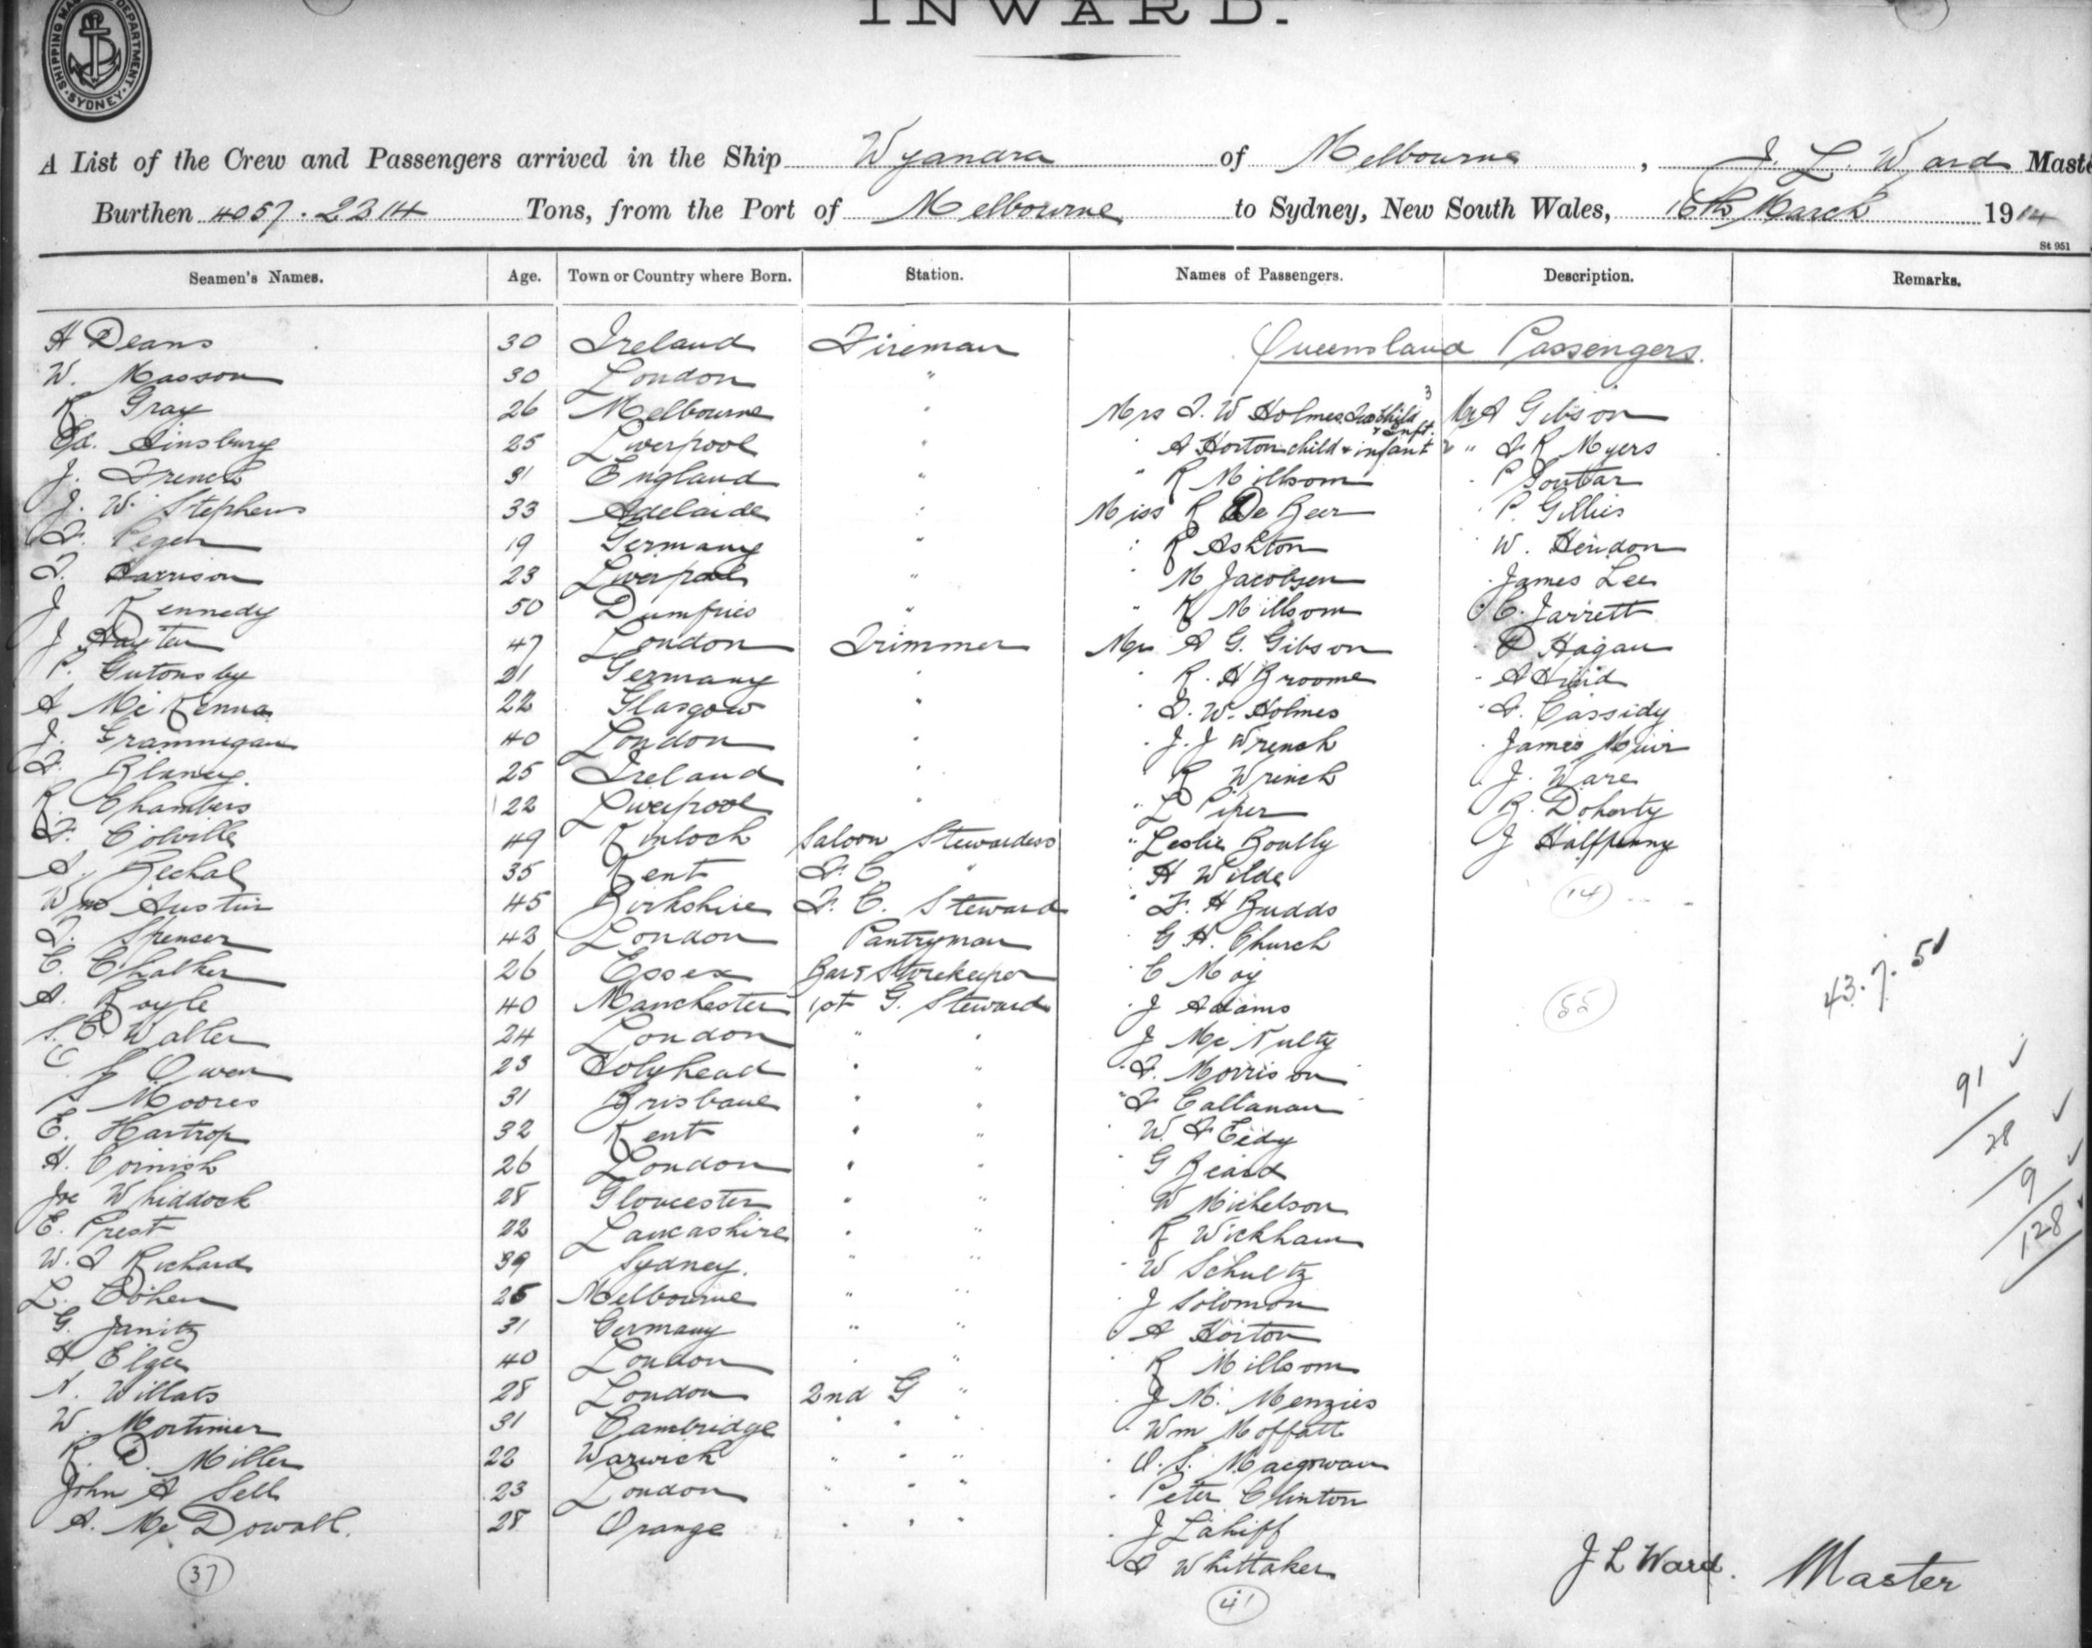 INWARD.
SHIPPING MASTER'S DEPARTMENT. SYDNEY.
A List of the Crew and Passengers arrived in the Ship Wyandra of Melbourne, J. L. Ward Maste
Burthen 4057. 2314 Tons, from the Port of Melbourne to Sydney, New South Wales, 16th March 1914
St 951
Seamen's Names. Age. Town or Country where Born. Station. Names of Passengers. Description. Remarks.
H Deans 30 Ireland Fireman Queensland Passengers.
W. Masson 30 London "
R. Gray 26 Melbourne " Mrs F. W Holmes child & Inft. 3 Mr A Gibson
Ed. Ainsbury 25 Liverpool " " A Horton child & infant 2 " F R Myers
J. French 31 England " " R Millsom " P Soutar
J. W. Stephens 33 Adelaide " Miss R De Beer " P. Gillies
F. Pegen 19 Germany " " R Ashton " W. Hendon
T. Harrison 23 Liverpool " " M Jacobsen " James Lee
J Kennedy 50 Dumfries " " R Millsom " C. Jarrett
J Hayter 47 London Trimmer Mr A G. Gibson " P Hagan
P. Gutonsby 21 Germany " " R. H Broome " A Hind
A McKenna 22 Glasgow " " F. W. Holmes " F. Cassidy
J. Grannigan 40 London " " J. J Wrench " James Muir
F. Blaney 25 Ireland " " R Wrench " J. Ware
R. Chambers 22 Liverpool " " L Piper " B. Doherty
F. Colville 49 Kinloch Saloon Stewardess " Leslie Boully " J Halfpenny
A. Bechal 35 Kent F. C " " H Wilde
Wm Austin 45 Birkshire F. C. Steward " F. H Budds 14
T. Spencer 43 London Pantryman " G H. Church
C. Chalker 26 Essex Bar & Storekeeper " C Moy 43. 7. 51
A. Royle 40 Manchester 1st G. Steward " J Adams 55
S. C Walter 24 London " " " J McNulty
C. J Owen 23 Holyhead " " " F. Morrison
P Moores 31 Brisbane " " " F Callanan 91
E. Hartrop 32 Kent " " " W. A Eidy 28
H. Cornish 26 London " " " G Beard 9
Joe Whiddock 28 Gloucester " " " W Michelson 128
E. Prest 22 Lancashire " " " R Wickham
W. T Richards 39 Sydney. " " " W Schultz
L. Cohen 26 Melbourne " " " J Solomon
G. Janitz 31 Germany " " " A Horton
H Elger 40 London " " " R Millsom
A. Willats 28 London 2nd G " " J M. Menzies
W. Mortimer 31 Cambridge " " " " Wm Moffatt
R. D. Miller 22 Warwick " " " " O. S. Macgowan
John A Sell 23 London " " " " Peter Clinton
A. McDowall. 28 Orange " " " " J Lahiff
" F Whittaker
37 41 J L Ward. Master